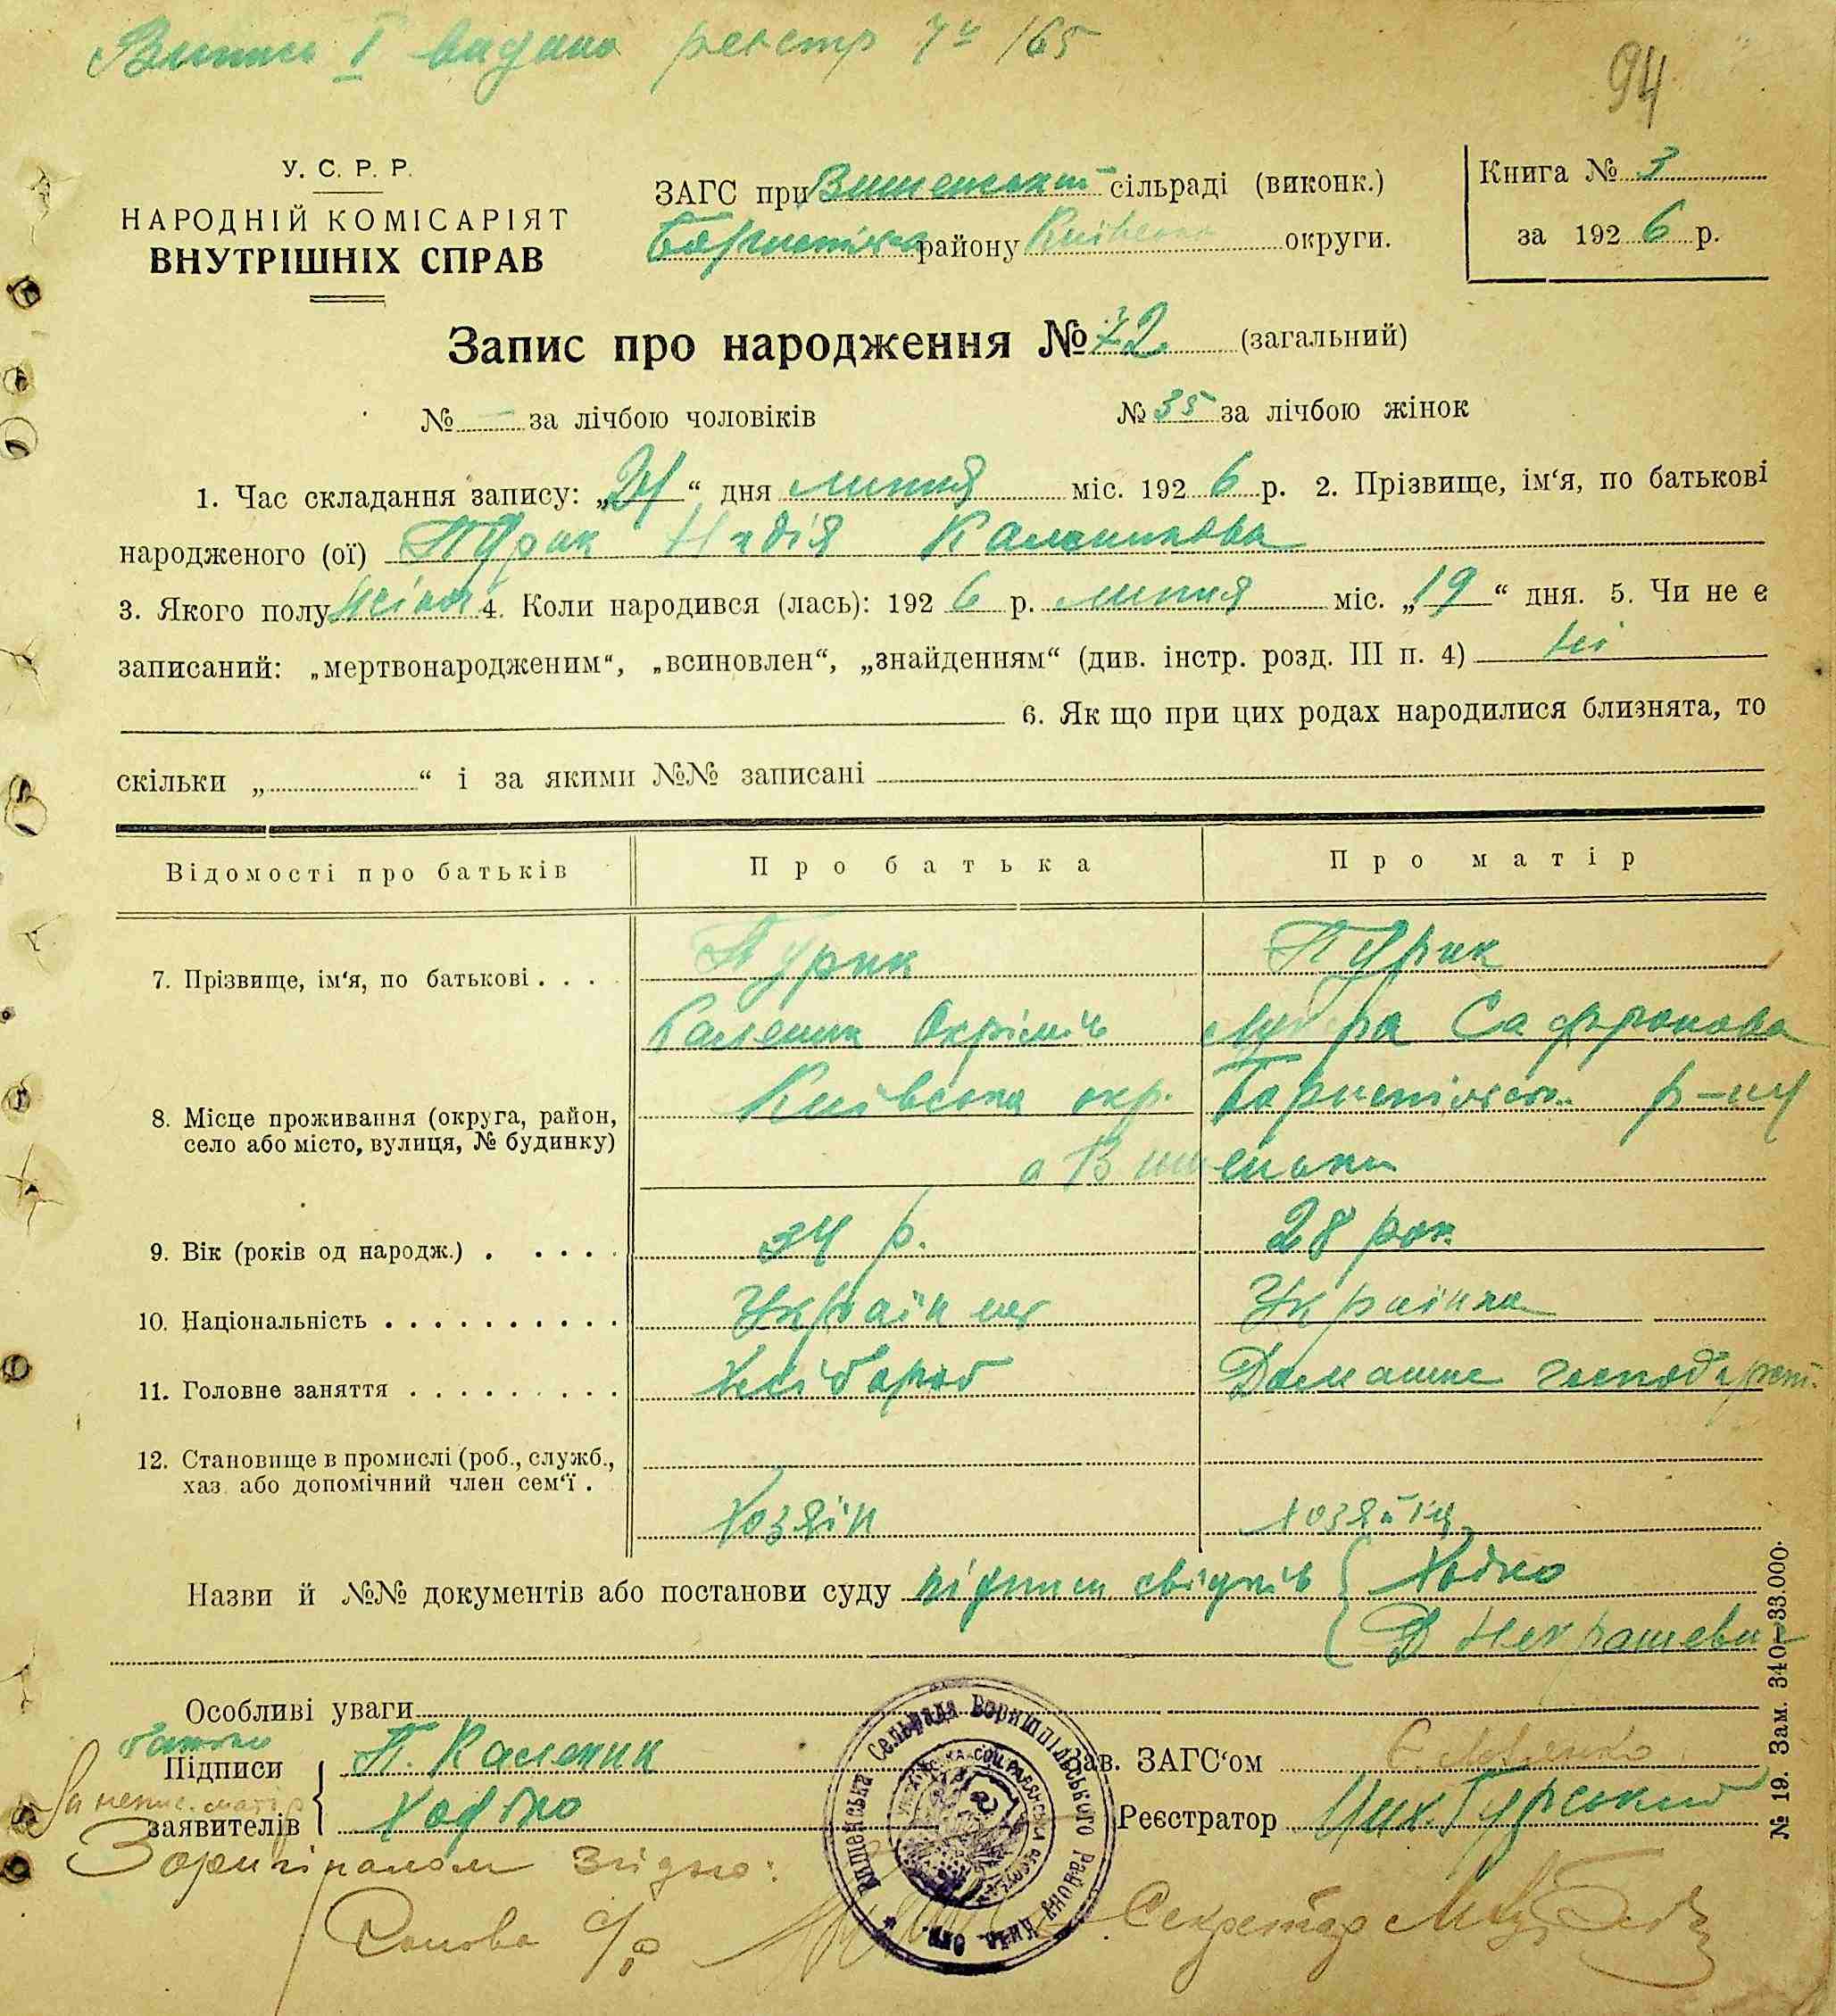 Випис І видано реєстр 74 /65
94
У. С. Р. Р.
НАРОДНІЙ КОМІСАРІЯТ
ВНУТРІШНІХ СПРАВ
ЗАГС при Вишенській сільраді (виконк.)
району Київської округи.
Книга № 3
за 1926 р.
Запис про народження № 72 (загальний)
№ — за лічбою чоловіків
№ 35 за лічбою жінок
1. Час складання запису: „21“ дня липня міс. 1926 р. 2. Прізвище, ім‘я, по батькові
народженого (ої) Пурик Надія Калеників
3. Якого полу жіноч 4. Коли народився (лась): 1926 р. липня міс. „19“ дня. 5. Чи не є
записаний: „мертвонародженим“, „всиновлен“, „знайденням“ (див. інстр. розд. III п. 4) ні
6. Як що при цих родах народилися близнята, то
скільки „ “ і за якими №№ записані
Відомості про батьків
Про батька
Про матір
7. Прізвище, ім‘я, по батькові . . . .
Пурик
Пурик
Каленик Охрімів
Сафронова
8. Місце проживання (округа, район,
село або місто, вулиця, № будинку)
Київська окр. Бориспільськ. р-ну
с Вишеньки
9. Вік (років од народж.) . . . . .
34 р.
28 рок
10. Національність . . . . . . . . . .
Українець
Українка
11. Головне заняття . . . . . . . . .
Хлібороб
Домашнє господарст.
12. Становище в промислі (роб., служб.,
хаз. або допомічний член сем‘ї .
Хозяїн
хозяйка
Назви й №№ документів або постанови суду підписи свідків Ходко
Д Некрашевич
Особливі уваги
батько
Підписи
заявителів
За непис. матір
П. Каленик
Ходко
Зав. ЗАГС‘ом
Реєстратор
Гурський
Вишенська Сельрада Боришпільського Району Київ. Окр.
З оригіналом згідно:
Голова с/р
Секретар
№ 19. Зам. 340—33.000.